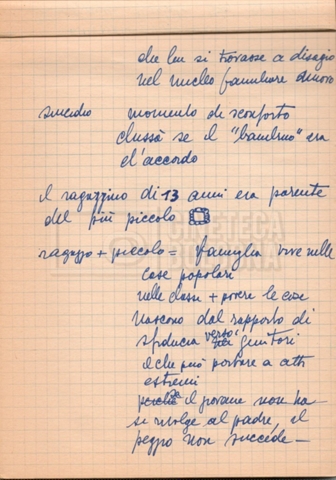 che lui si trovasse a disagio
nel nucleo familiare
suicidio momento di sconforto
chissà se il "bambino" era
d'accordo
il ragazzino di 13 anni era parente
del più piccolo
ragazzo + piccolo = famiglia vive nelle
case popolari
nelle classi + povere le cose
nascono dal rapporto di
sfiducia verso i genitori
il che può portare a atti
estremi
perché se il giovane non ha
si rivolge al padre, il
peggio non succede —